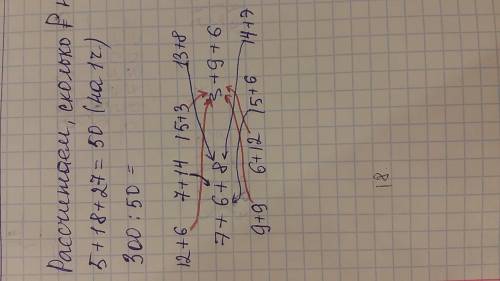 Рассчитаем, сколько
5+18+27=50 (на 1г)
300:50=
12+6 7+14 15+3 13+8
7+6+8 3+9+6
9+9 6+12 15+6 14+7
18